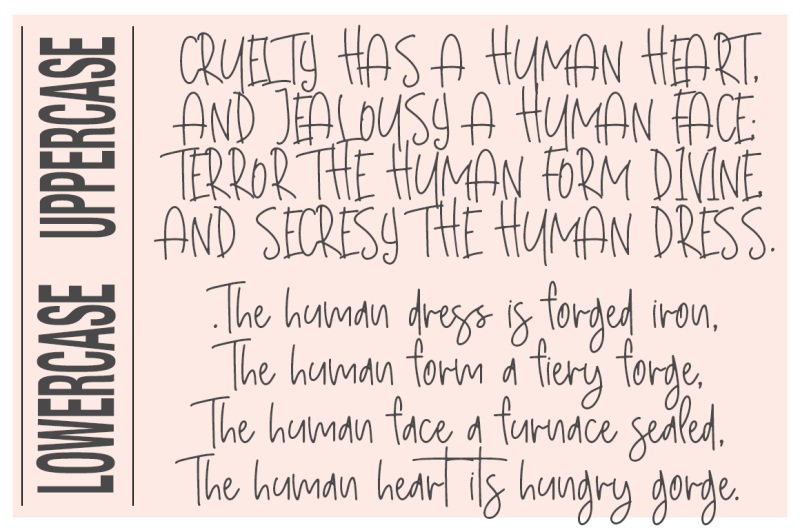 UPPERCASE
CRUELTY HAS A HUMAN HEART,
AND JEALOUSY A HUMAN FACE;
TERROR THE HUMAN FORM DIVINE,
AND SECRESY THE HUMAN DRESS.
LOWERCASE
.The human dress is forged iron,
The human form a fiery forge,
The human face a furnace sealed,
The human heart its hungry gorge.